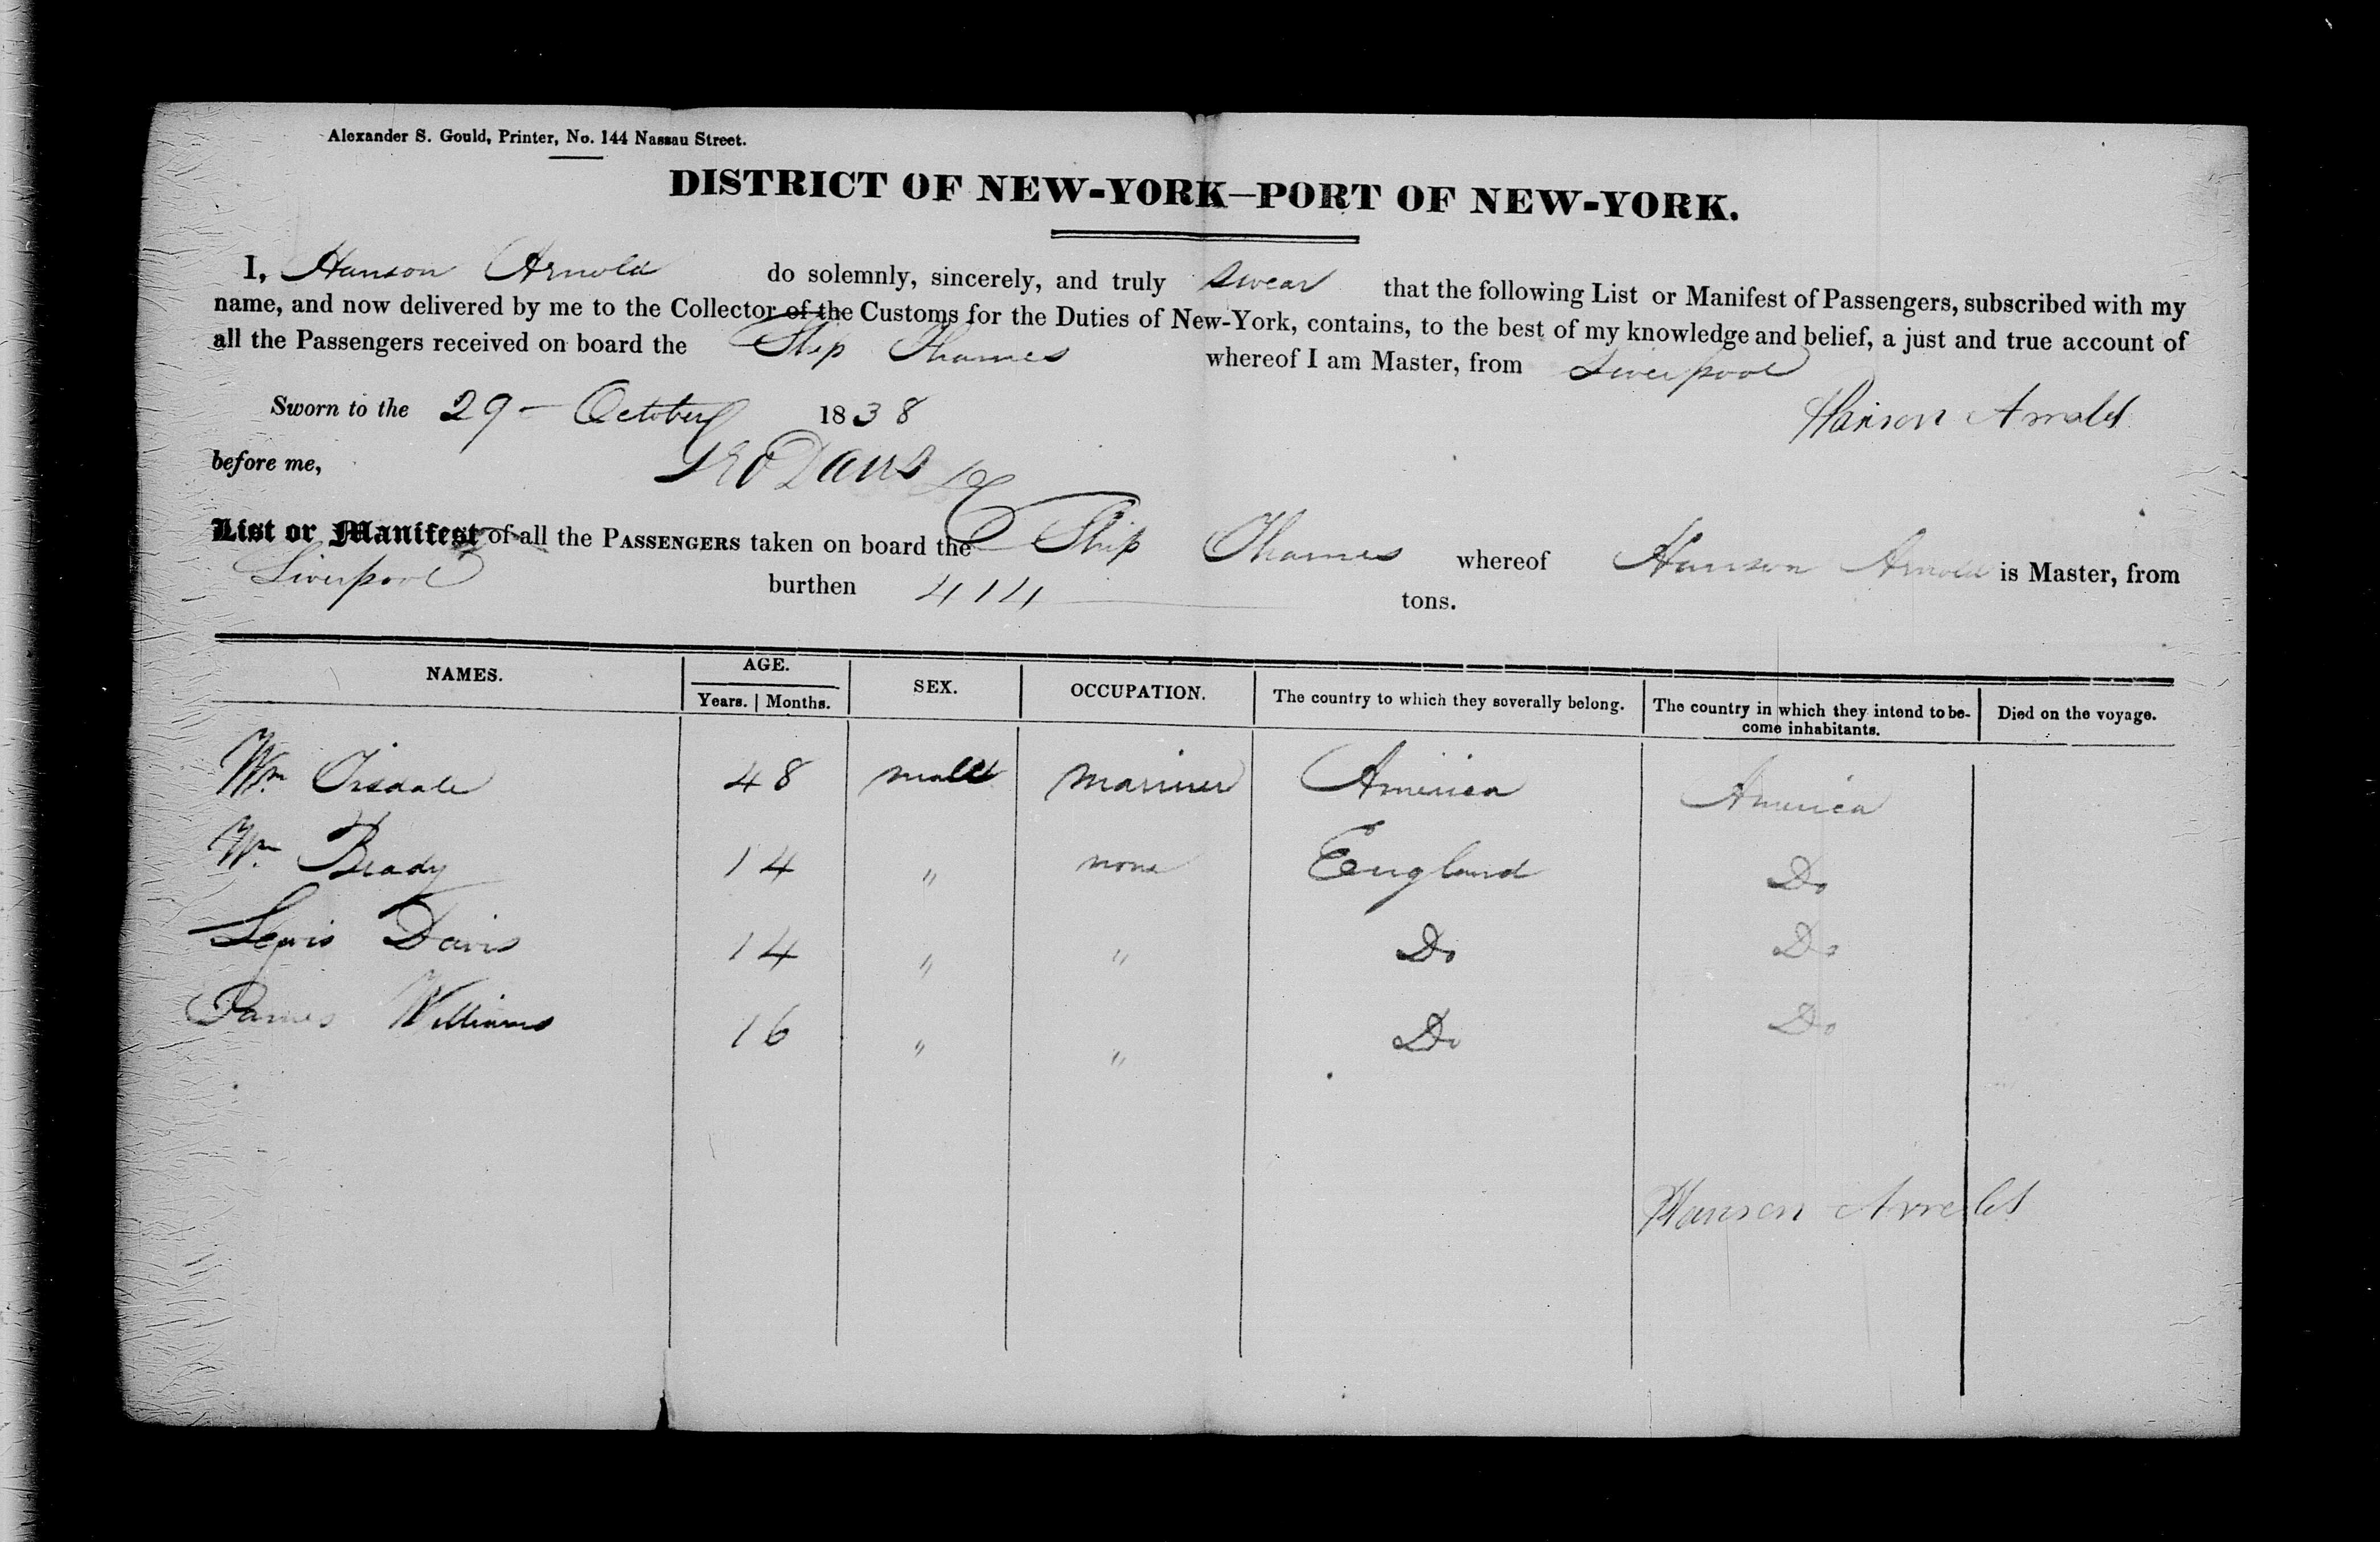 Alexander S. Gould, Printer, No. 144 Nassau Street.
DISTRICT OF NEW-YORK—PORT OF NEW-YORK.
I, Hanson Arnold do solemnly, sincerely, and truly swear that the following List or Manifest of Passengers, subscribed with my
name, and now delivered by me to the Collector of the Customs for the Duties of New-York, contains, to the best of my knowledge and belief, a just and true account of
all the Passengers received on board the Ship Thames whereof I am Master, from Liverpool
Sworn to the 29 - October 1838
Hanson Arnold
before me,
Geo Davis
List or Manifest of all the PASSENGERS taken on board the Ship Thames whereof Hanson Arnold is Master, from
Liverpool burthen 414 tons.
NAMES. AGE. Years. | Months. SEX. OCCUPATION. The country to which they severally belong. The country in which they intend to be-come inhabitants. Died on the voyage.
Wm. Tisdale 48 male mariner America America
Wm. Brady 14 " none England Do
Lewis Davis 14 " " Do Do
James Williams 16 " " Do Do
Hanson Arnold